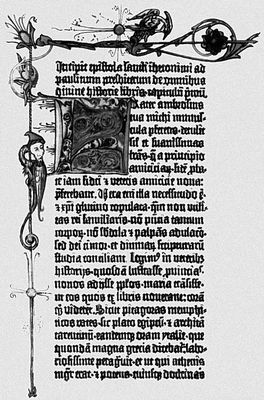 Incipit epistola sancti iheronimi ad
paulinum presbiterum de omnibus
diuine historie libris. capitulum pmũ.
Frater ambrosius
tua michi munus-
cula pferens. detulit
sil et suauissimas
lrãs. q̃ a principio
amiciciar. fidẽ pba-
te iam fidei et veteris amicicie noua:
pferebant. Uera eni illa necessitudo ẽ.
et xpi glutino copulata. qm non vtili-
tas rei familiaris. nõ pñcia tantum
corporũ. nõ sbdola et palpãs adulacõ.
sed dei timor. et diuinarũ scripturarũ
studia conciliant. Legim9 in veterib9
historijs. quosdã lustrasse puincias.
nouos adijsse pplos. maria trãsisse.
ut eos quos ex libris nouerant: corã
q̃ viderẽt. Sicut pitagoras memphi-
ticos vates. sic plato egiptũ. et architã
tarentinũ. eandemq oram ytalie. que
quondã magna grecia dicebat: labo-
riosissime peragrauit. et ut qui athenis
mgr erat. et potens. cuiusq doctrinas